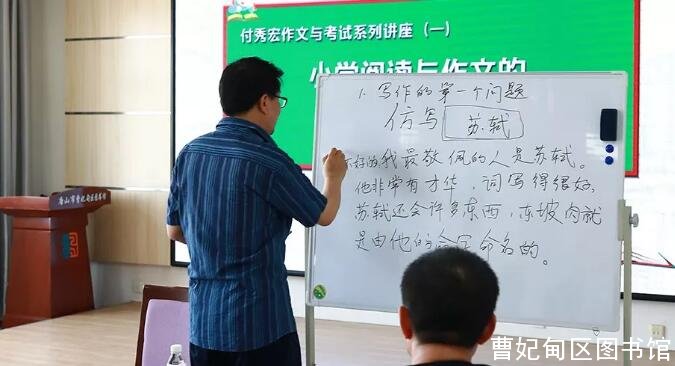 付秀宏作文与考试系列讲座（一）
小学阅读与作文的
1、写作的第一个问题
仿写 苏轼
不好的 我最敬佩的人是苏轼。
他非常有才华，词写得很好，
苏轼还会许多东西，东坡肉就
是由他的命名的。
曹妃甸区图书馆